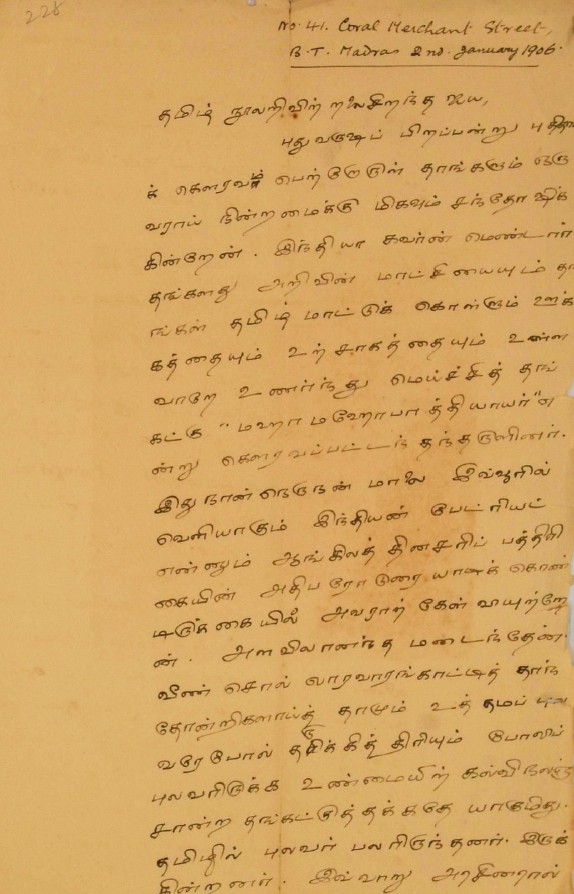 228
No. 41. Coral Merchant Street,
B.T. Madras 2nd. January 1906.
தமிழ் நூலறிவிற்றலைசிறந்த ஐய,
புதுவருஷப் பிறப்பன்று புதிதா
க் கௌரவம் பெற்றோருள் தாங்களும் ஒரு
வராய் நின்றமைக்கு மிகவும் சந்தோஷிக்
கின்றேன். இந்தியா கவர்ன்மெண்டார்
தங்களது அறிவின் மாட்சியையும் தா
ங்கள் தமிழ் மாட்டுக் கொள்ளும் ஊக்
கத்தையும் உற்சாகத்தையும் உள்ள
வாறே உணர்ந்து மெய்ச்சித் தங்
கட்கு "மஹாமஹோபாத்தியாயர்" எ
ன்று கௌரவப்பட்டந் தந்தருளினர்.
இது நான் நெருநன் மாலை இவ்வூரில்
வெளியாகும் இந்தியன் பேட்ரியட்
என்னும் ஆங்கிலத் தினசரிப் பத்திரி
கையின் அதிபரோடுரையாடிக் கொண்
டிருக்கையில் அவராற் கேள்வியுற்றே
ன். அளவிலானந்த மடைந்தேன்.
வீண் சொல் லாரவாரங்காட்டித் தாந்
தோன்றிகளாய்த் தாமும் உத்தமப் புல
வரேபோல் தருக்கித் திரியும் போலிப்
புலவரிருக்க உண்மையிற் கல்விநலஞ்
சான்ற தங்கட்குத்தக்கதே யாகுமிது.
தமிழில் புலவர் பலரிருந்தனர். இருக்
கின்றனர். இவ்வாறு அரசினரால்